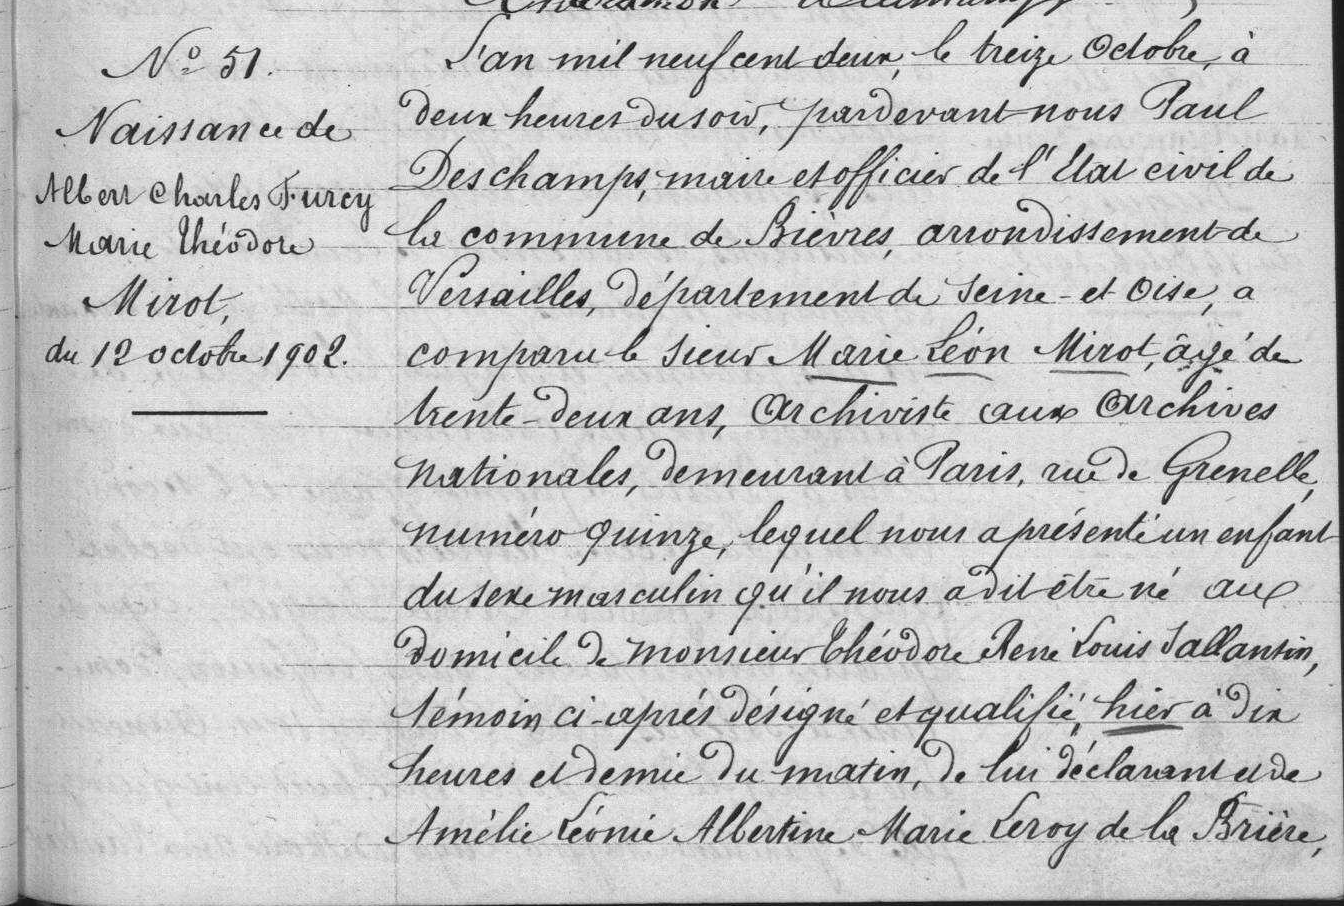 No 51.
Naissance de
Albert Charles Furcy
Marie Théodore
Mirot,
du 12 octobre 1902.
L'an mil neuf cent deux, le treize Octobre, à
deux heures du soir, pardevant nous Paul
Deschamps, maire et officier de l'Etat civil de
la commune de Bièvres, arrondissement de
Versailles, département de Seine-et Oise, a
comparu le sieur Marie Léon Mirot, âgé de
trente-deux ans, Archiviste aux Archives
nationales, demeurant à Paris, rue de Grenelle,
numéro quinze, lequel nous a présenté un enfant
du sexe masculin qu'il nous a dit être né aux
domicile de monsieur Théodore René Louis Sallantin,
témoin ci-après désigné et qualifié, hier à dix
heures et demie du matin, de lui déclarant et de
Amélie Léonie Albertine Marie Leroy de la Brière,